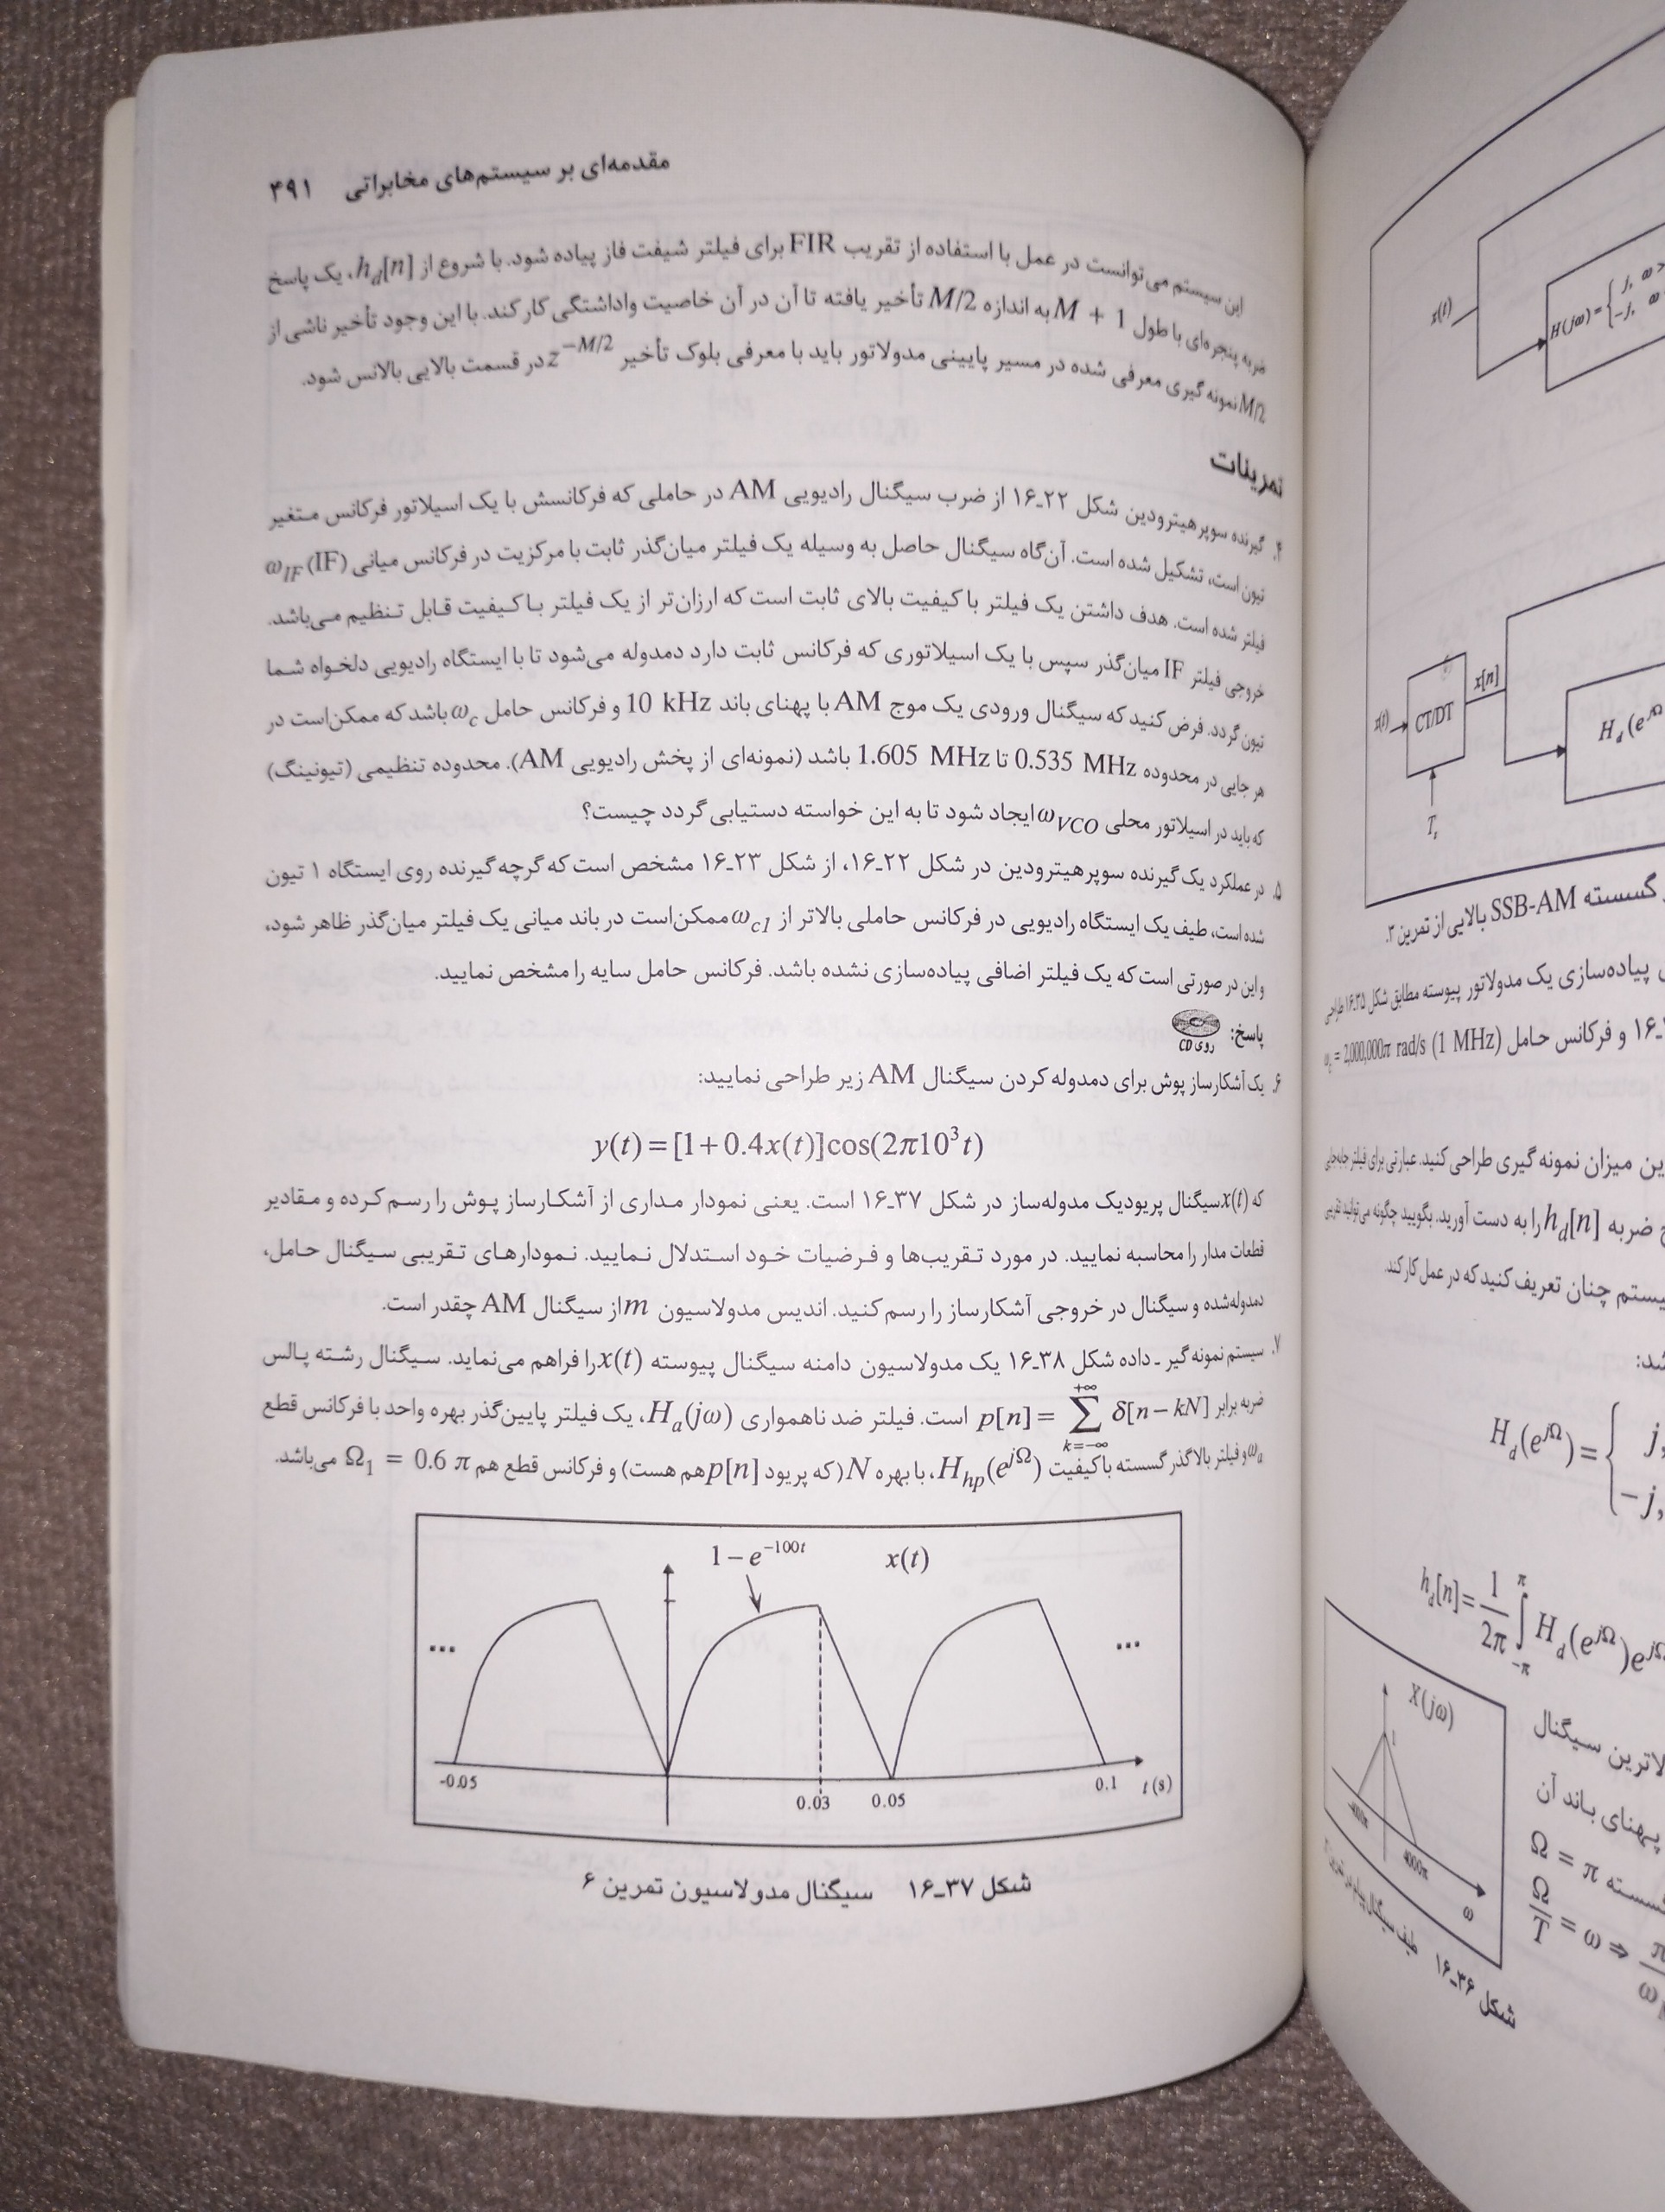 مقدمه‌ای بر سیستم‌های مخابراتی ۴۹۱
این سیستم می‌توانست در عمل با استفاده از تقریب FIR برای فیلتر شیفت فاز پیاده شود. با شروع از h_d[n]، یک پاسخ
ضربه پنجره‌ای با طول M + 1 به اندازه M/2 تأخیر یافته تا آن در آن خاصیت واداشتگی کار کند. با این وجود تأخیر ناشی از
M/2 نمونه گیری معرفی شده در مسیر پایینی مدولاتور باید با معرفی بلوک تأخیر z^{-M/2} در قسمت بالایی بالانس شود.
تمرینات
۴. گیرنده سوپرهیترودین شکل ۲۲ـ۱۶ از ضرب سیگنال رادیویی AM در حاملی که فرکانسش با یک اسیلاتور فرکانس متغیر
تیون است، تشکیل شده است. آن‌گاه سیگنال حاصل به وسیله یک فیلتر میان‌گذر ثابت با مرکزیت در فرکانس میانی (IF) ω_IF
فیلتر شده است. هدف داشتن یک فیلتر با کیفیت بالای ثابت است که ارزان‌تر از یک فیلتر با کیفیت قابل تنظیم می‌باشد.
خروجی فیلتر IF میان‌گذر سپس با یک اسیلاتوری که فرکانس ثابت دارد دمدوله می‌شود تا با ایستگاه رادیویی دلخواه شما
تیون گردد. فرض کنید که سیگنال ورودی یک موج AM با پهنای باند 10 kHz و فرکانس حامل ω_c باشد که ممکن است در
هر جایی در محدوده 0.535 MHz تا 1.605 MHz باشد (نمونه‌ای از پخش رادیویی AM). محدوده تنظیمی (تیونینگ)
که باید در اسیلاتور محلی ω_VCO ایجاد شود تا به این خواسته دستیابی گردد چیست؟
۵. در عملکرد یک گیرنده سوپرهیترودین در شکل ۲۲ـ۱۶، از شکل ۲۳ـ۱۶ مشخص است که گرچه گیرنده روی ایستگاه ۱ تیون
شده است، طیف یک ایستگاه رادیویی در فرکانس حاملی بالاتر از ω_c1 ممکن است در باند میانی یک فیلتر میان‌گذر ظاهر شود،
و این در صورتی است که یک فیلتر اضافی پیاده‌سازی نشده باشد. فرکانس حامل سایه را مشخص نمایید.
پاسخ: روی CD
۶. یک آشکارساز پوش برای دمدوله کردن سیگنال AM زیر طراحی نمایید:
y(t) = [1 + 0.4x(t)]cos(2π10³t)
که x(t) سیگنال پریودیک مدوله‌ساز در شکل ۳۷ـ۱۶ است. یعنی نمودار مداری از آشکارساز پوش را رسم کرده و مقادیر
قطعات مدار را محاسبه نمایید. در مورد تقریب‌ها و فرضیات خود استدلال نمایید. نمودارهای تقریبی سیگنال حامل،
دمدوله‌شده و سیگنال در خروجی آشکارساز را رسم کنید. اندیس مدولاسیون m از سیگنال AM چقدر است.
۷. سیستم نمونه گیر ـ داده شکل ۳۸ـ۱۶ یک مدولاسیون دامنه سیگنال پیوسته x(t) را فراهم می‌نماید. سیگنال رشته پالس
ضربه برابر p[n] = ∑_{k=-∞}^{+∞} δ[n − kN] است. فیلتر ضد ناهمواری H_a(jω)، یک فیلتر پایین‌گذر بهره واحد با فرکانس قطع
ω_a و فیلتر بالاگذر گسسته باکیفیت H_hp(e^{jΩ})، با بهره N (که پریود p[n] هم هست) و فرکانس قطع هم Ω_1 = 0.6 π می‌باشد.
1 − e^{−100t} x(t)
... ...
-0.05 0.03 0.05 0.1 t (s)
شکل ۳۷ـ۱۶ سیگنال مدولاسیون تمرین ۶
x(t)
H(jω) = { j, ω >
−j, ω
x(t) CT/DT x[n] H_d(e^{jΩ}
T_s
گسسته SSB-AM بالایی از تمرین ۳.
پیاده‌سازی یک مدولاتور پیوسته مطابق شکل ۳۵ـ۱۶ طراحی
و فرکانس حامل (1 MHz) ω_c = 2,000,000π rad/s
ین میزان نمونه گیری طراحی کنید. عبارتی برای فیلتر جابه‌جایی
ضربه h_d[n] را به دست آورید. بگویید چگونه می‌توانید تقریبی
یستم چنان تعریف کنید که در عمل کار کند.
شد:
H_d(e^{jΩ}) = { j,
−j,
h_d[n] = 1/2π ∫_{−π}^{π} H_d(e^{jΩ})e^{jΩ
X(jω)
1
4000π
ω
لاترین سیگنال
پهنای باند آن
گسسته Ω = π
ω = Ω/T ⇒
شکل ۳۶ـ۱۶